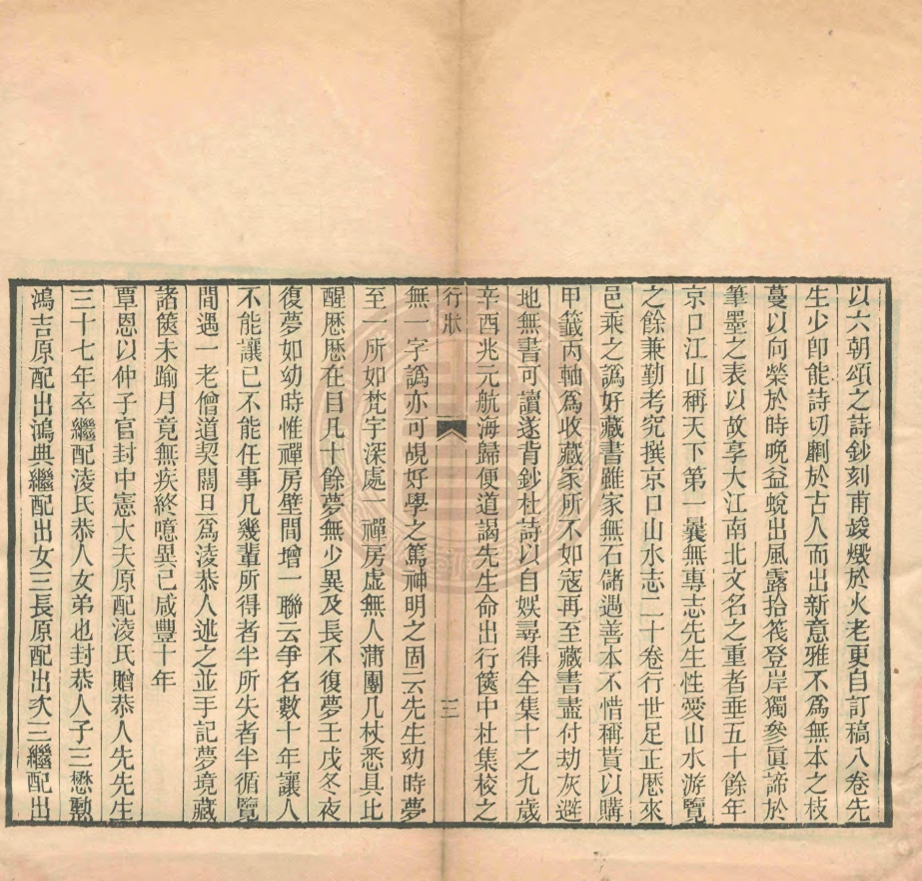 以六朝頌之詩鈔刻甫竣燬於火老更自訂稿八卷先
生少卽能詩切劘於古人而出新意雅不爲無本之枝
蔓以向榮於時晚益蛻出風露拾筏登岸獨參眞諦於
筆墨之表以故享大江南北文名之重者垂五十餘年
京口江山稱天下第一曩無專志先生性愛山水游覽
之餘兼勤考究撰京口山水志二十卷行世足正歷來
邑乘之譌好藏書雖家無石儲遇善本不惜稱貰以購
甲籤丙軸爲收藏家所不如寇再至藏書盡付劫灰避
地無書可讀遂背鈔杜詩以自娛尋得全集十之九歲
辛酉兆元航海歸便道謁先生命出行篋中杜集校之
行狀
三
無一字譌亦可覘好學之篤神明之固云先生幼時夢
至一所如梵宇深處一禪房虛無人蒲團几杖悉具比
醒歷歷在目凡十餘夢無少異及長不復夢壬戌冬夜
復夢如幼時惟禪房壁間增一聯云爭名數十年讓人
不能讓已不能任事凡幾輩所得者半所失者半循覽
間遇一老僧道契闊日爲淩恭人述之並手記夢境藏
諸篋未踰月竟無疾終噫異已咸豐十年
覃恩以仲子官封中憲大夫原配淩氏贈恭人先先生
三十七年卒繼配淩氏恭人女弟也封恭人子三懋勳
鴻吉原配出鴻典繼配出女三長原配出次三繼配出